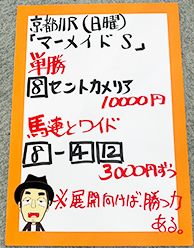 京都11R(日曜)
「マーメイドS」
単勝
8セントカメリア
10000円
馬連とワイド
8-4 12
3000円ずつ
※展開向けば、勝つ力
ある。